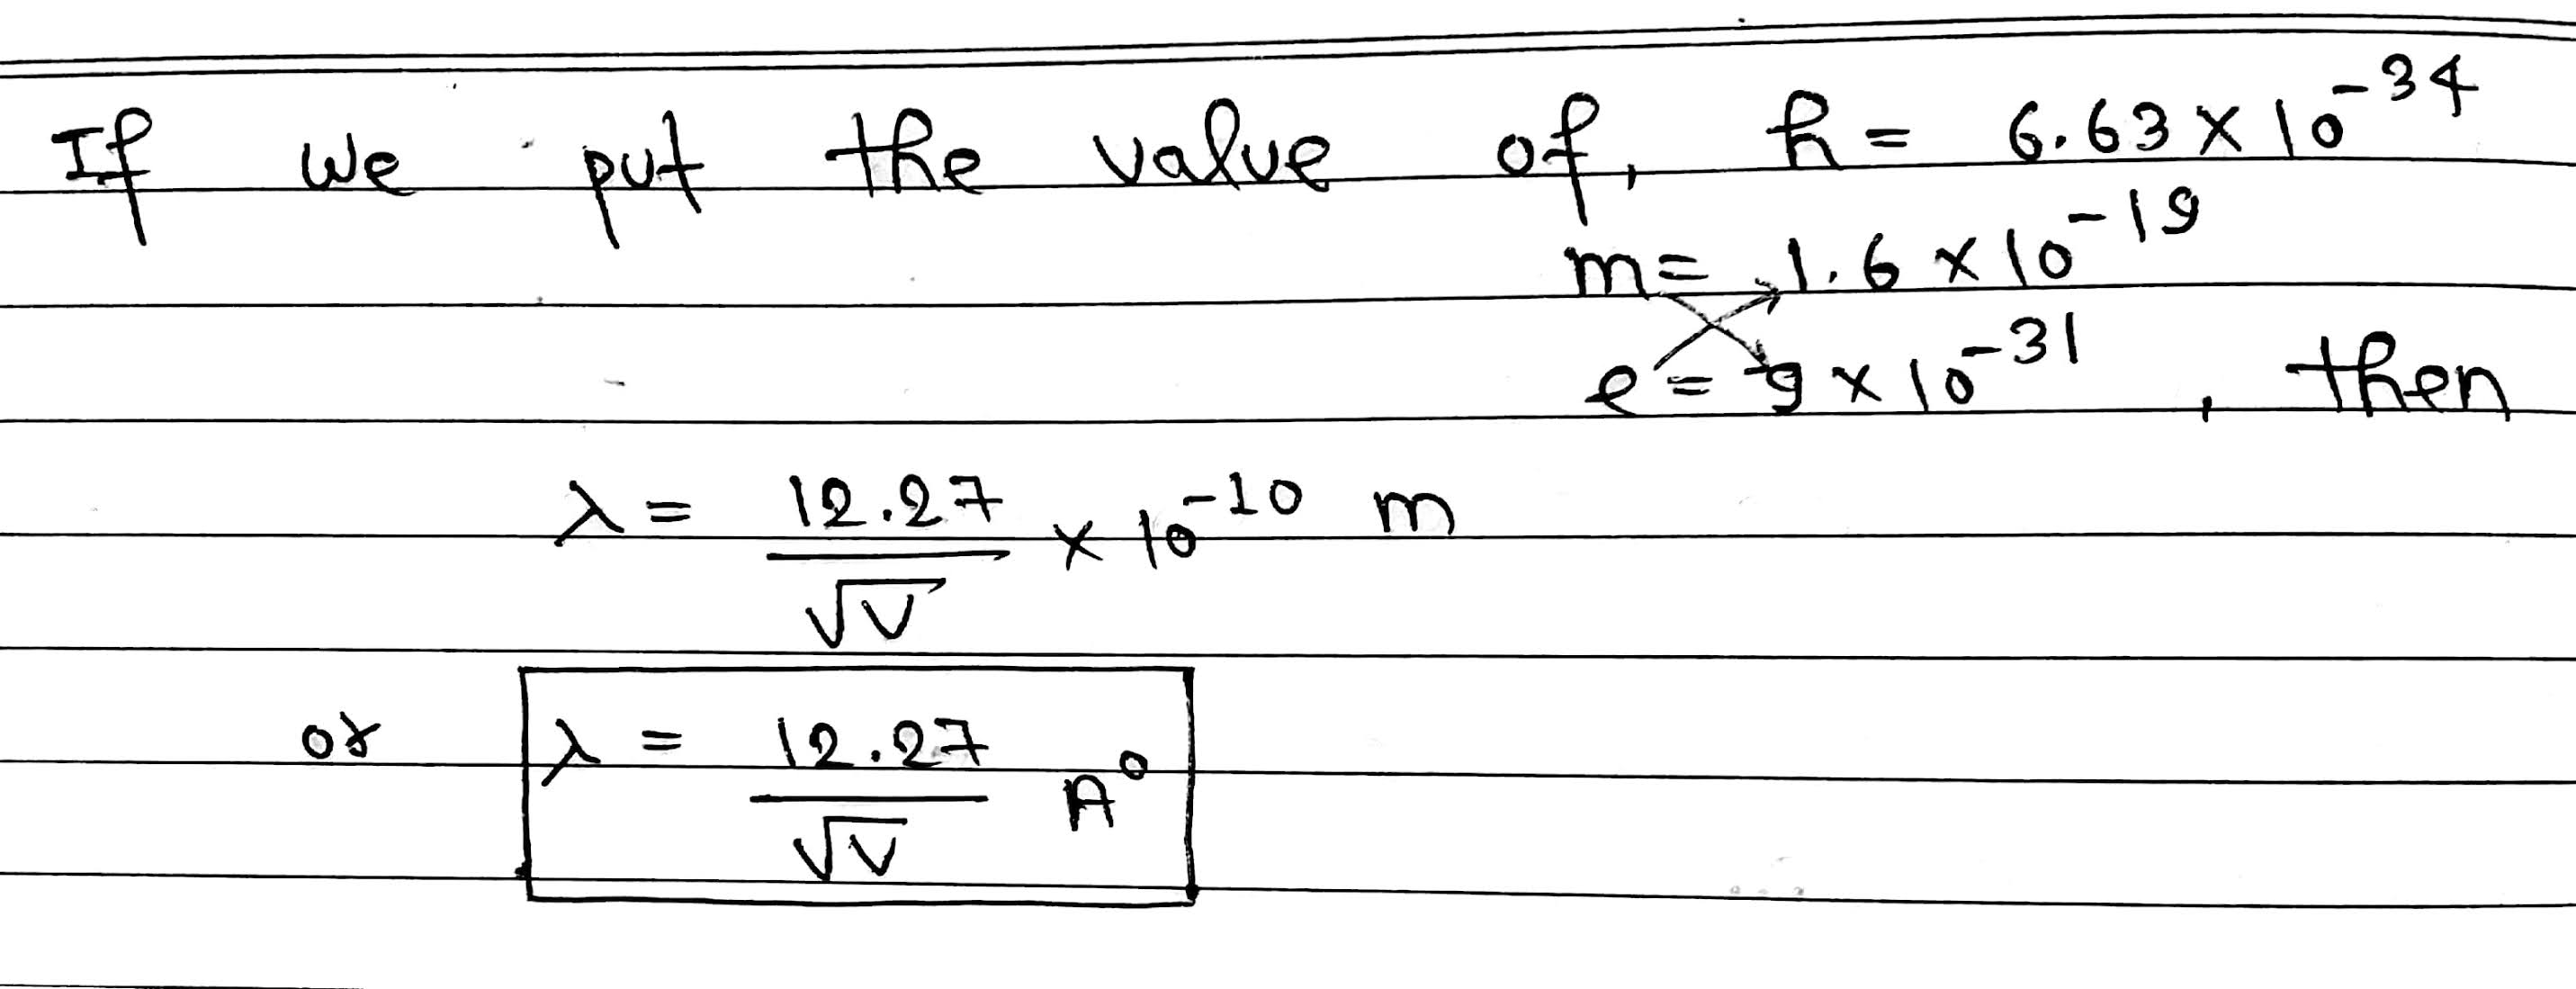 If we put the value of, h = 6.63 × 10⁻³⁴
m = 1.6 × 10⁻¹⁹
e = 9 × 10⁻³¹, then
λ = 12.27/√V × 10⁻¹⁰ m
or λ = 12.27/√V A°